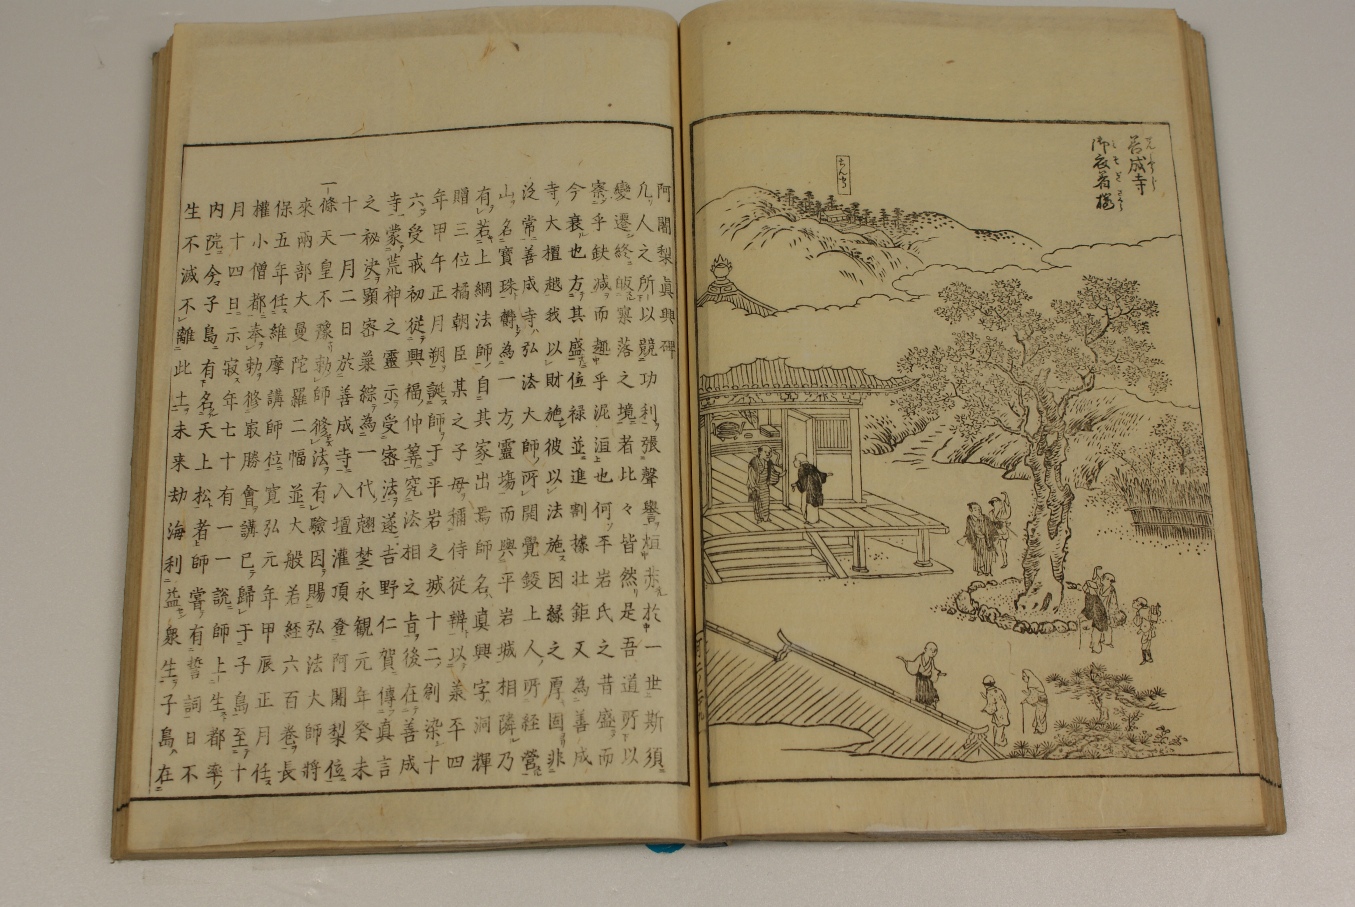 善成寺
御衣着楊
阿闍梨眞興碑
凡人之所以競功利張聲譽烜赫於一世斯須
變遷終皈寥落之境者比々皆然是吾道所以
寮乎缺減而趣乎泥洹也何平岩氏之昔盛而
今衰也方其盛位禄並進割據壮鉅又為善成
寺大檀越我以財施彼以法施因縁之厚固非
泛常善成寺弘法大師所開覺鑁上人所経營
山名寶珠欝為一方靈塲而與平岩城相隣乃
有若上綱法師自其家出焉師名真興字洞輝
贈三位橘朝臣某之子母稱侍従辨以羕平四
年甲午正月朔誕師于平岩之城十二剃染十
六受戒初従興福仲筭究法相之旨後在善成
寺蒙荒神之靈示受密法遂吉野仁賀傳真言
之秘决顯密兼綜為一代翹楚永観元年癸未
十一月二日於善成寺入壇灌頂登阿闍梨位
一條天皇不豫勅師修法有驗因賜弘法大師將
來兩部大曼陀羅二幅並大般若経六百卷長
保五年任維摩講師位寛弘元年甲辰正月任
權小僧都奉勅修最勝會講已歸于子島至十
月十四日示寂年七十有一一説師上生都率
内院今子島有名天上松者師嘗有誓詞曰不
生不滅不離此土未来劫海利益衆生子島在